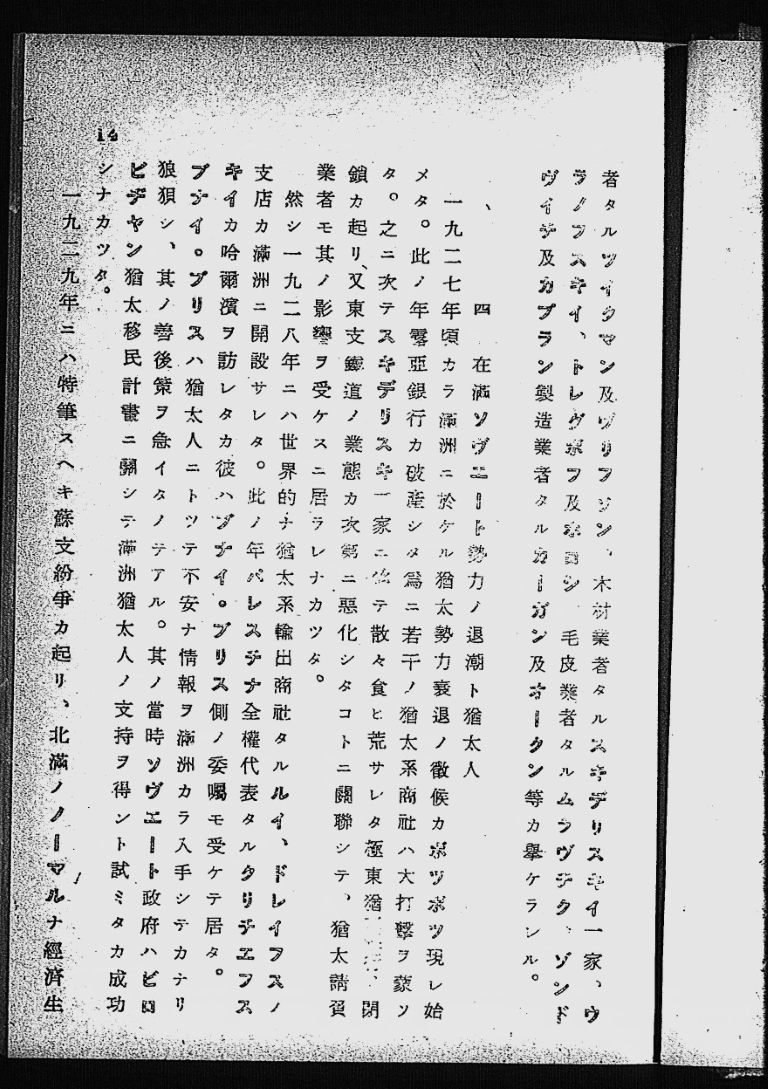 者タルツイクマン及ヴリフソン、木材業者タルスキデリスキイ一家、ウ
ラノフスキイ、トレグボフ及ホロシ、毛皮業者タルムラヴチク、ゾンド
ヴイチ及カプラン製造業者タルカーガン及オークン等カ擧ケラレル。
四 在滿ソヴエート勢力ノ退潮ト猶太人
一九二七年頃カラ滿洲ニ於ケル猶太勢力衰退ノ徵候カボツボツ現レ始
メタ。此ノ年露亞銀行カ破産シタ爲ニ若干ノ猶太系商社ハ大打擊ヲ蒙ツ
タ。之ニ次テスキデリスキ一家ニ依テ散々食ヒ荒サレタ極東猶 閉
鎖カ起リ、又東支鐵道ノ業態カ次第ニ惡化シタコトニ關聯シテ、猶太請負
業者モ其ノ影響ヲ受ケスニ居ラレナカツタ。
然シ一九二八年ニハ世界的ナ猶太系輸出商社タルルイ、ドレイフスノ
支店カ滿洲ニ開設サレタ。此ノ年パレスチナ全權代表タルクリチエフス
キイカ哈爾濱ヲ訪レタカ彼ハブナイ。ブリス側ノ委囑モ受ケテ居タ。
ブナイ。ブリスハ猶太人ニトツテ不安ナ情報ヲ滿洲カラ入手シテカナリ
狼狽シ、其ノ善後策ヲ急イタノテアル。其ノ當時ソヴエート政府ハビロ
ビヂヤン猶太移民計畫ニ關シテ滿洲猶太人ノ支持ヲ得ント試ミタカ成功
シナカツタ。
一九二九年ニハ特筆スヘキ蘇支紛爭カ起リ、北滿ノノーマルナ經濟生
14